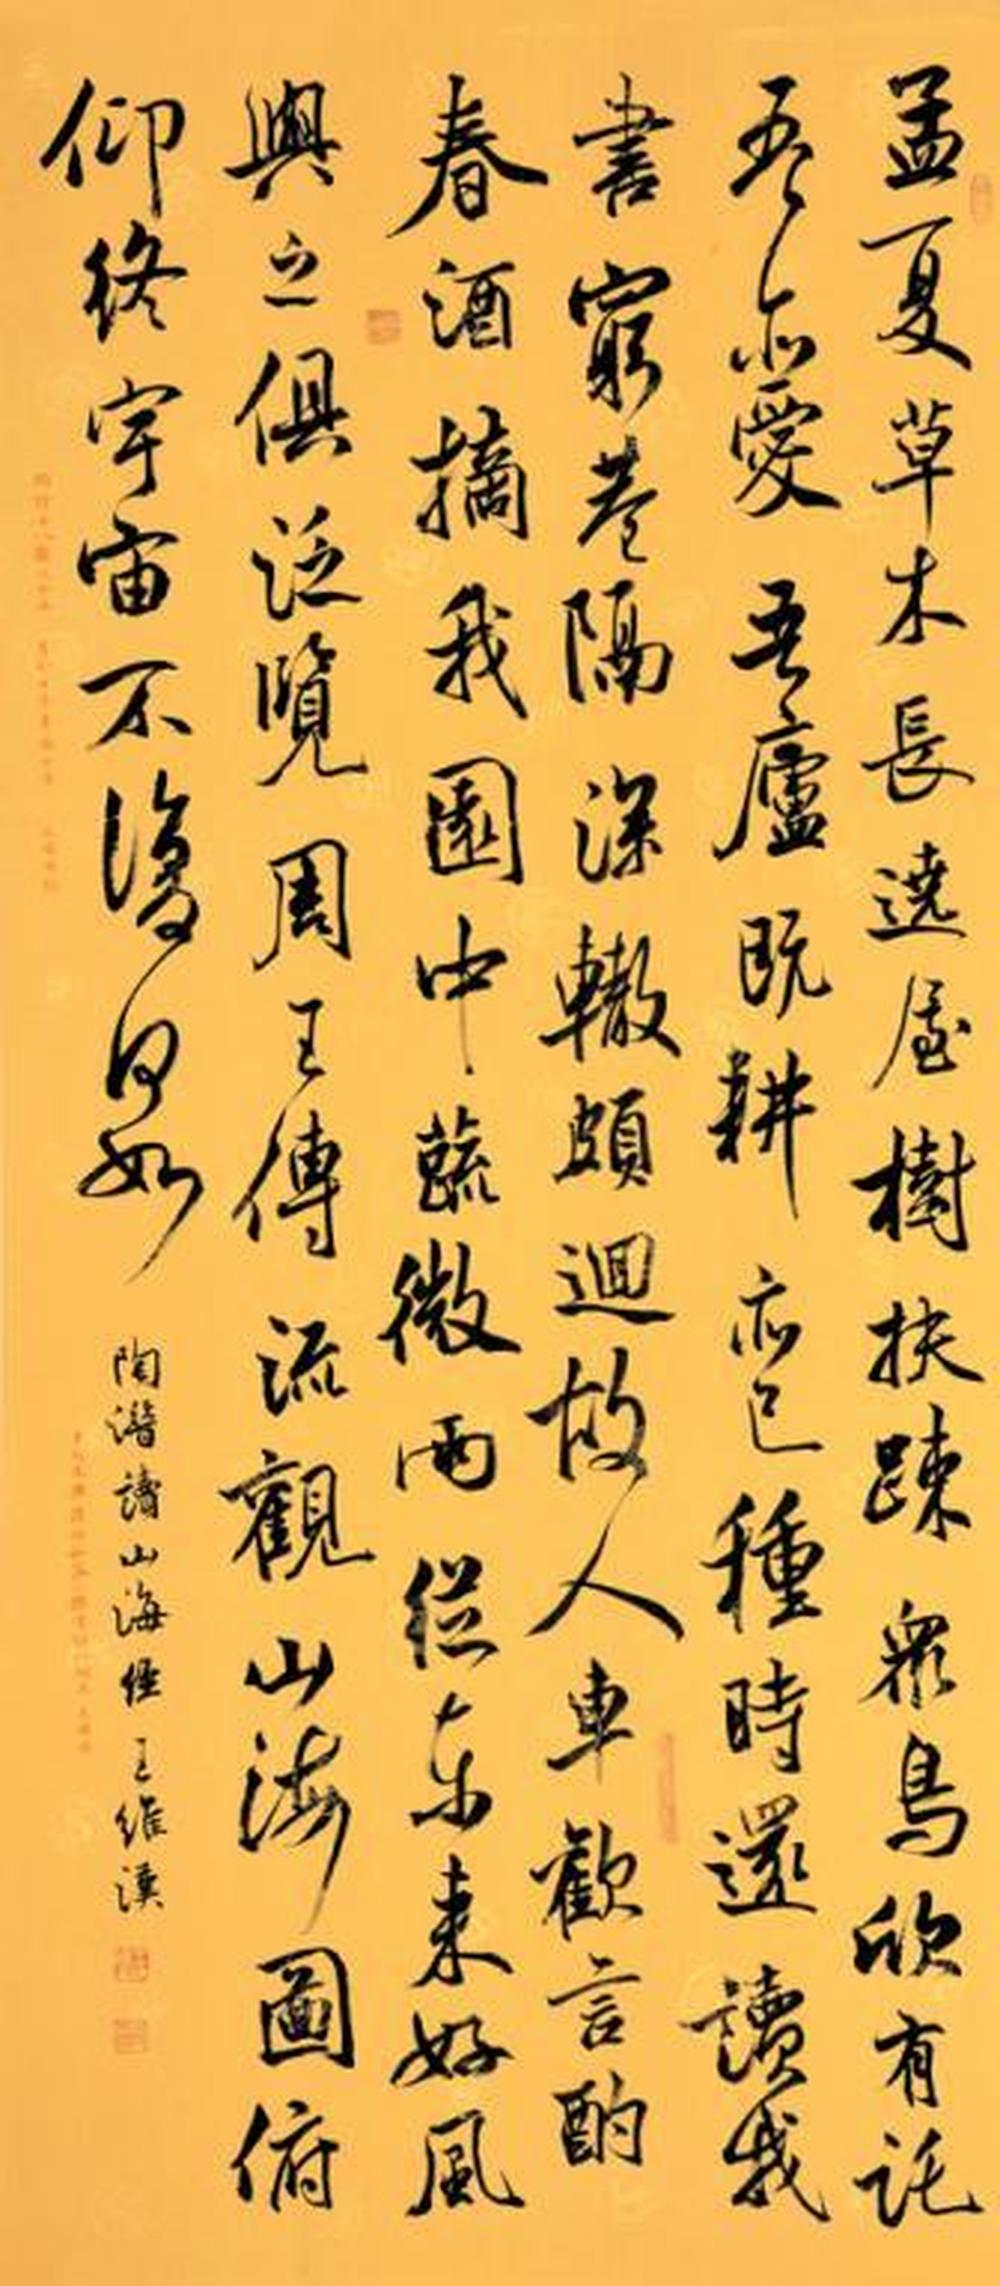 孟夏草木長遶屋樹扶疎眾鳥欣有託
吾亦愛吾廬既耕亦已種時還讀我
書窮巷隔深轍頗迴故人車歡言酌
春酒摘我園中蔬微雨從東來好風
與之俱泛覽周王傳流觀山海圖俯
仰終宇宙不復何如
陶潛讀山海經王維漢